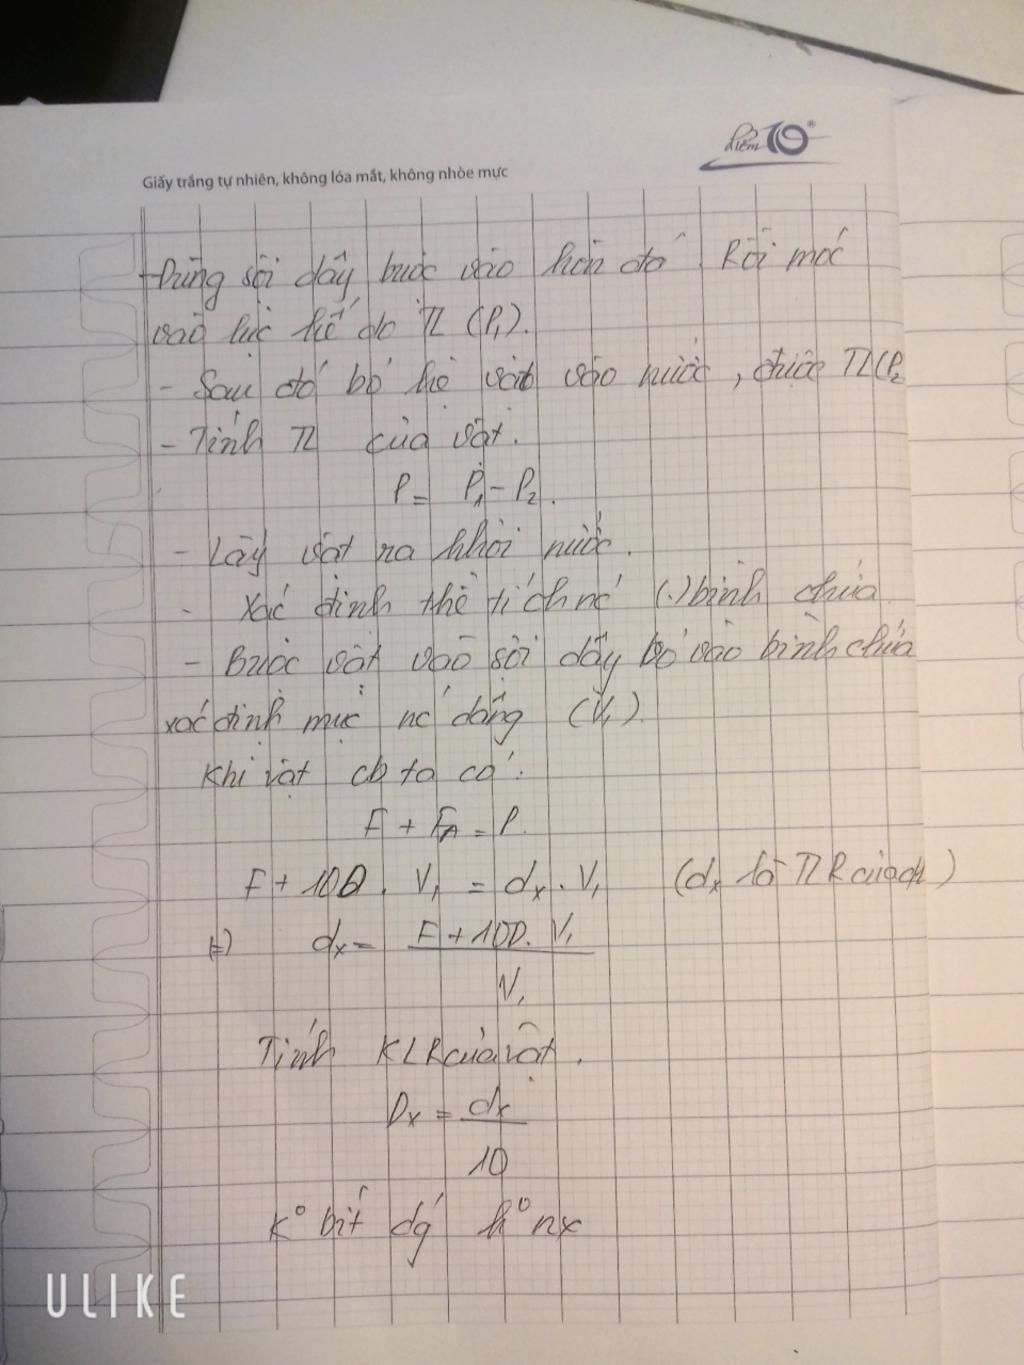 Điểm 10
Giấy trắng tự nhiên, không lóa mắt, không nhòe mực
- Dùng sợi dây buộc vào hòn đá. Rồi móc
vào lực kế đo TL (P₁).
- Sau đó bỏ hệ vật vào nước, được TL (P₂
- Tính TL của vật.
P = P₁ - P₂.
- Lấy vật ra khỏi nước.
- Xác định thể tích nc´ (.) bình chứa
- Buộc vật vào sợi dây bỏ vào bình chứa
xác định mực nc´ dâng (V₁).
Khi vật cb ta có:
F + FA = P.
F + 10D. V₁ = dx . V₁ (dx là TLR của )
=> dx = F + 10D. V₁
V₁
Tính KLR của vật.
Dx = dx
10
K° bít
ULIKE